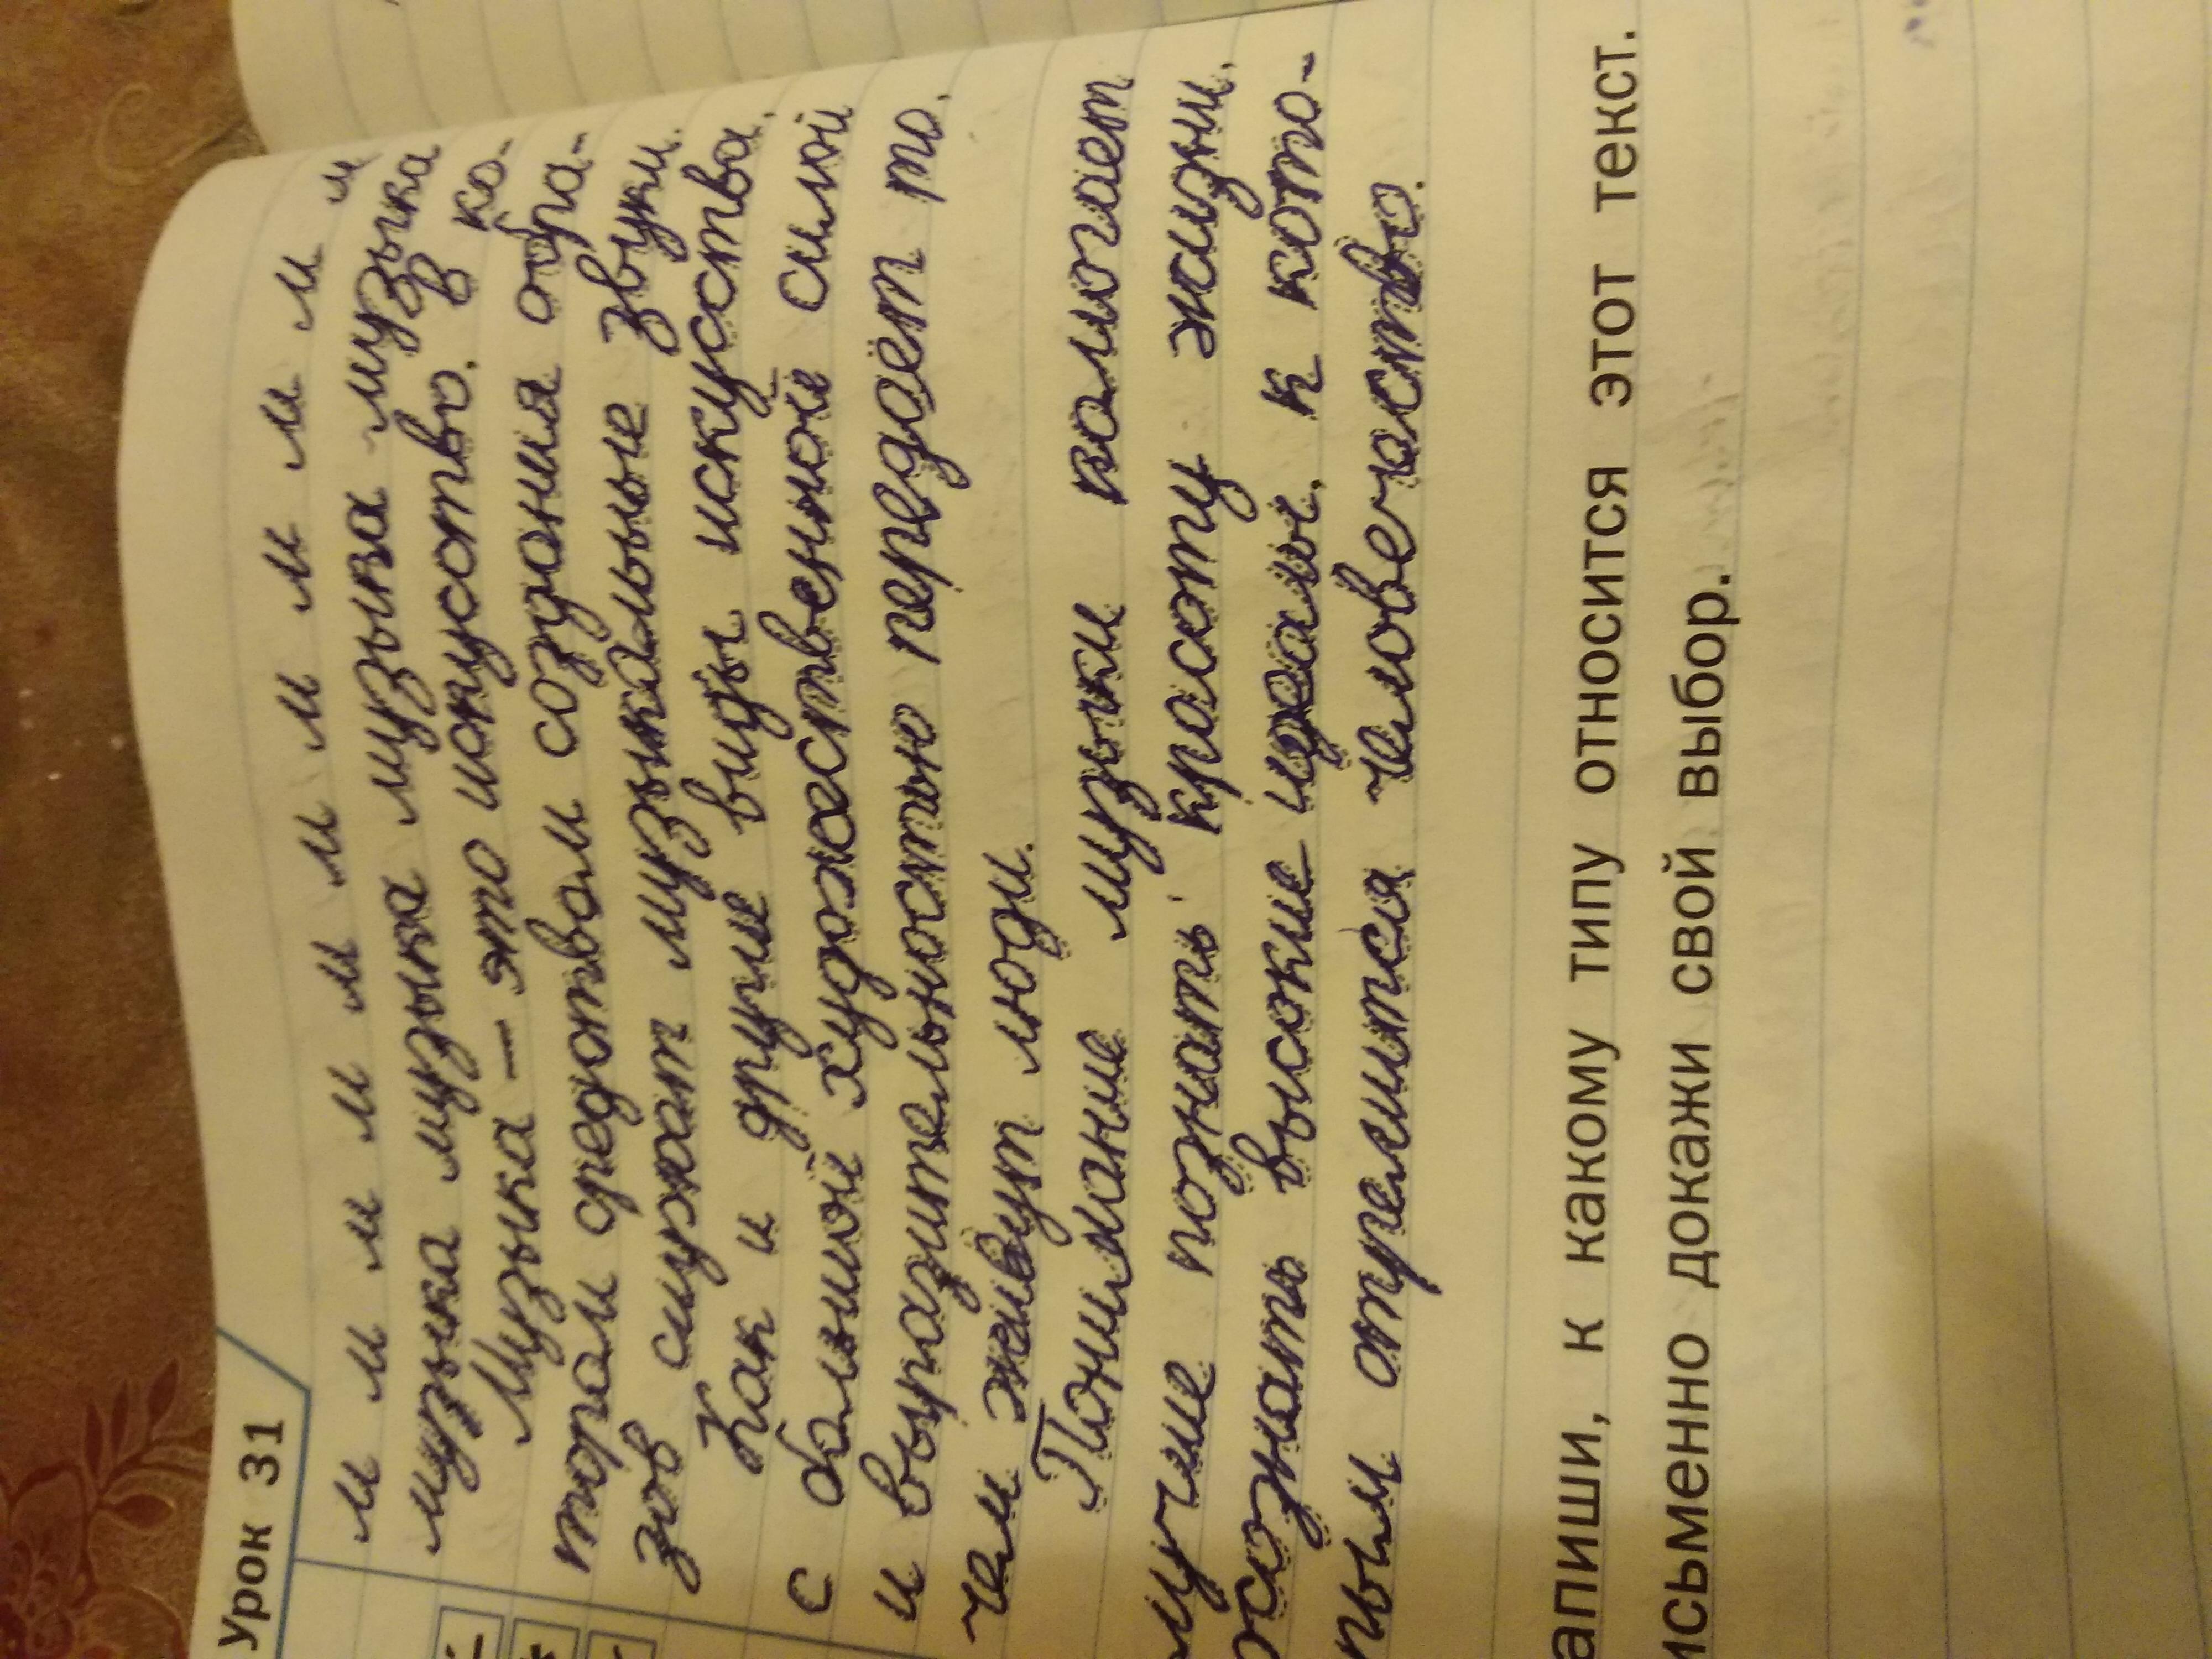 Урок 31
м м м м м м м м м м м
музыка музыка музыка музыка
Музыка — это искусство. В ко-
тором средством создания обра-
зов служат музыкальные звуки.
Как и другие виды искусства,
с большой художественной силой
и выразительностью передаёт то,
чем живут люди.
Понимание музыки помогает
лучше познать красоту жизни,
осознать высокие идеалы, к кото-
рым стремится человечество.
апиши, к какому типу относится этот текст.
исьменно докажи свой выбор.